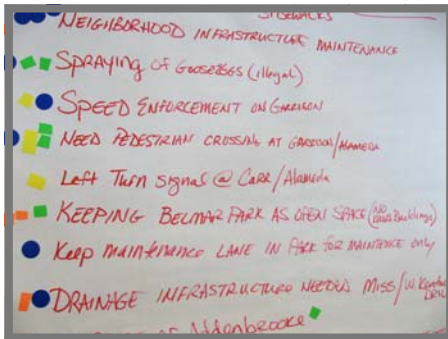 SIDEWALKS
NEIGHBORHOOD INFRASTRUCTURE MAINTENANCE
SPRAYING OF GOOSEEGGS (illegal)
SPEED ENFORCEMENT ON GARRISON
NEED PEDESTRIAN CROSSING AT GARRISON/ALAMEDA
Left Turn signal @ CARR/Alameda
KEEPING BELMAR PARK AS OPEN SPACE (NO Buildings)
Keep maintenance LANE IN PARK FOR MAINTENCE only
DRAINAGE INFRASTRUCTURE NEEDED MISS/W.
OF Addenbrooke